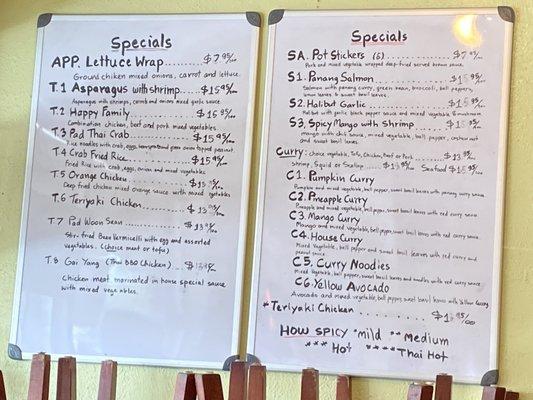 Specials
APP. Lettuce Wrap $7.95
Ground chicken mixed onions, carrot and lettuce.
T.1 Asparagus with shrimp $15.95
Asparagus with shrimps, carrot and onions mixed garlic sauce.
T.2 Happy Family $15.95
Combination chicken, beef and pork mixed vegetables.
T.3 Pad Thai Crab $15.95
Rice noodles with crab, eggs, green onion topped peanut.
T.4 Crab Fried Rice $15.95
Fried Rice with crab, eggs, onion and mixed vegetables
T.5 Orange Chicken
Deep fried chicken mixed orange sauce with mixed vegetables
T.6 Teriyaki Chicken $13.95
T.7 Pad Woon Sen $13.95
Stir-fried Bean Vermicelli with egg and assorted
vegetables. (choice meat or tofu)
T.8 Gai Yang (Thai BBQ Chicken) $13.95
Chicken meat marinated in house special sauce
with mixed vegetables.
Specials
SA. Pot Stickers (6) $7.95
Pork and mixed vegetable wrapped deep-fried served brown sauce.
S1. Panang Salmon $15.95
Salmon with panang curry, green bean, broccoli, bell peppers,
lime leaves & sweet basil leaves.
S2. Halibut Garlic $15.95
Halibut with garlic black pepper sauce and mixed vegetable & mushroom
S3. Spicy Mango with Shrimp
mango with chili sauce, mixed vegetable, bell pepper, cashew nut
and sweet basil leaves.
Curry: choice vegetable, Tofu, Chicken, Beef or Pork $13.95
Shrimp, Squid or Scallop $15.95 Seafood $15.95
C1. Pumpkin Curry
Pumpkin and mixed vegetable, bell pepper, sweet basil leaves with panang curry sauce
C2. Pineapple Curry
Pineapple and mixed vegetable, bell pepper, sweet basil leaves with red curry sauce.
C3. Mango Curry
Mango and mixed vegetable, bell pepper, sweet basil leaves with red curry sauce.
C4. House Curry
Mixed vegetable, bell pepper and sweet basil leaves with red curry and
peanut sauce
C5. Curry Noodles
Mixed vegetable, bell pepper, sweet basil leaves and noodles with red curry sauce.
C6. Yellow Avocado
Avocado and mixed vegetable, bell pepper, sweet basil leaves with Yellow Curry
*Teriyaki Chicken
How Spicy *mild **Medium
***Hot ****Thai Hot